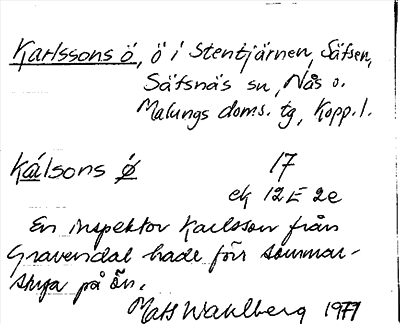 Karlssons ö, ö i Stentjärnen, Säfsen,
Säfsnäs sn, Nås o.
Malungs doms. tg, Kopp. l.
Kálsons ø 17
ek 12E 2e
En inspektor Karlsson från
Gravendal hade förr sommar-
stuga på ön.
Mats Wahlberg 1977